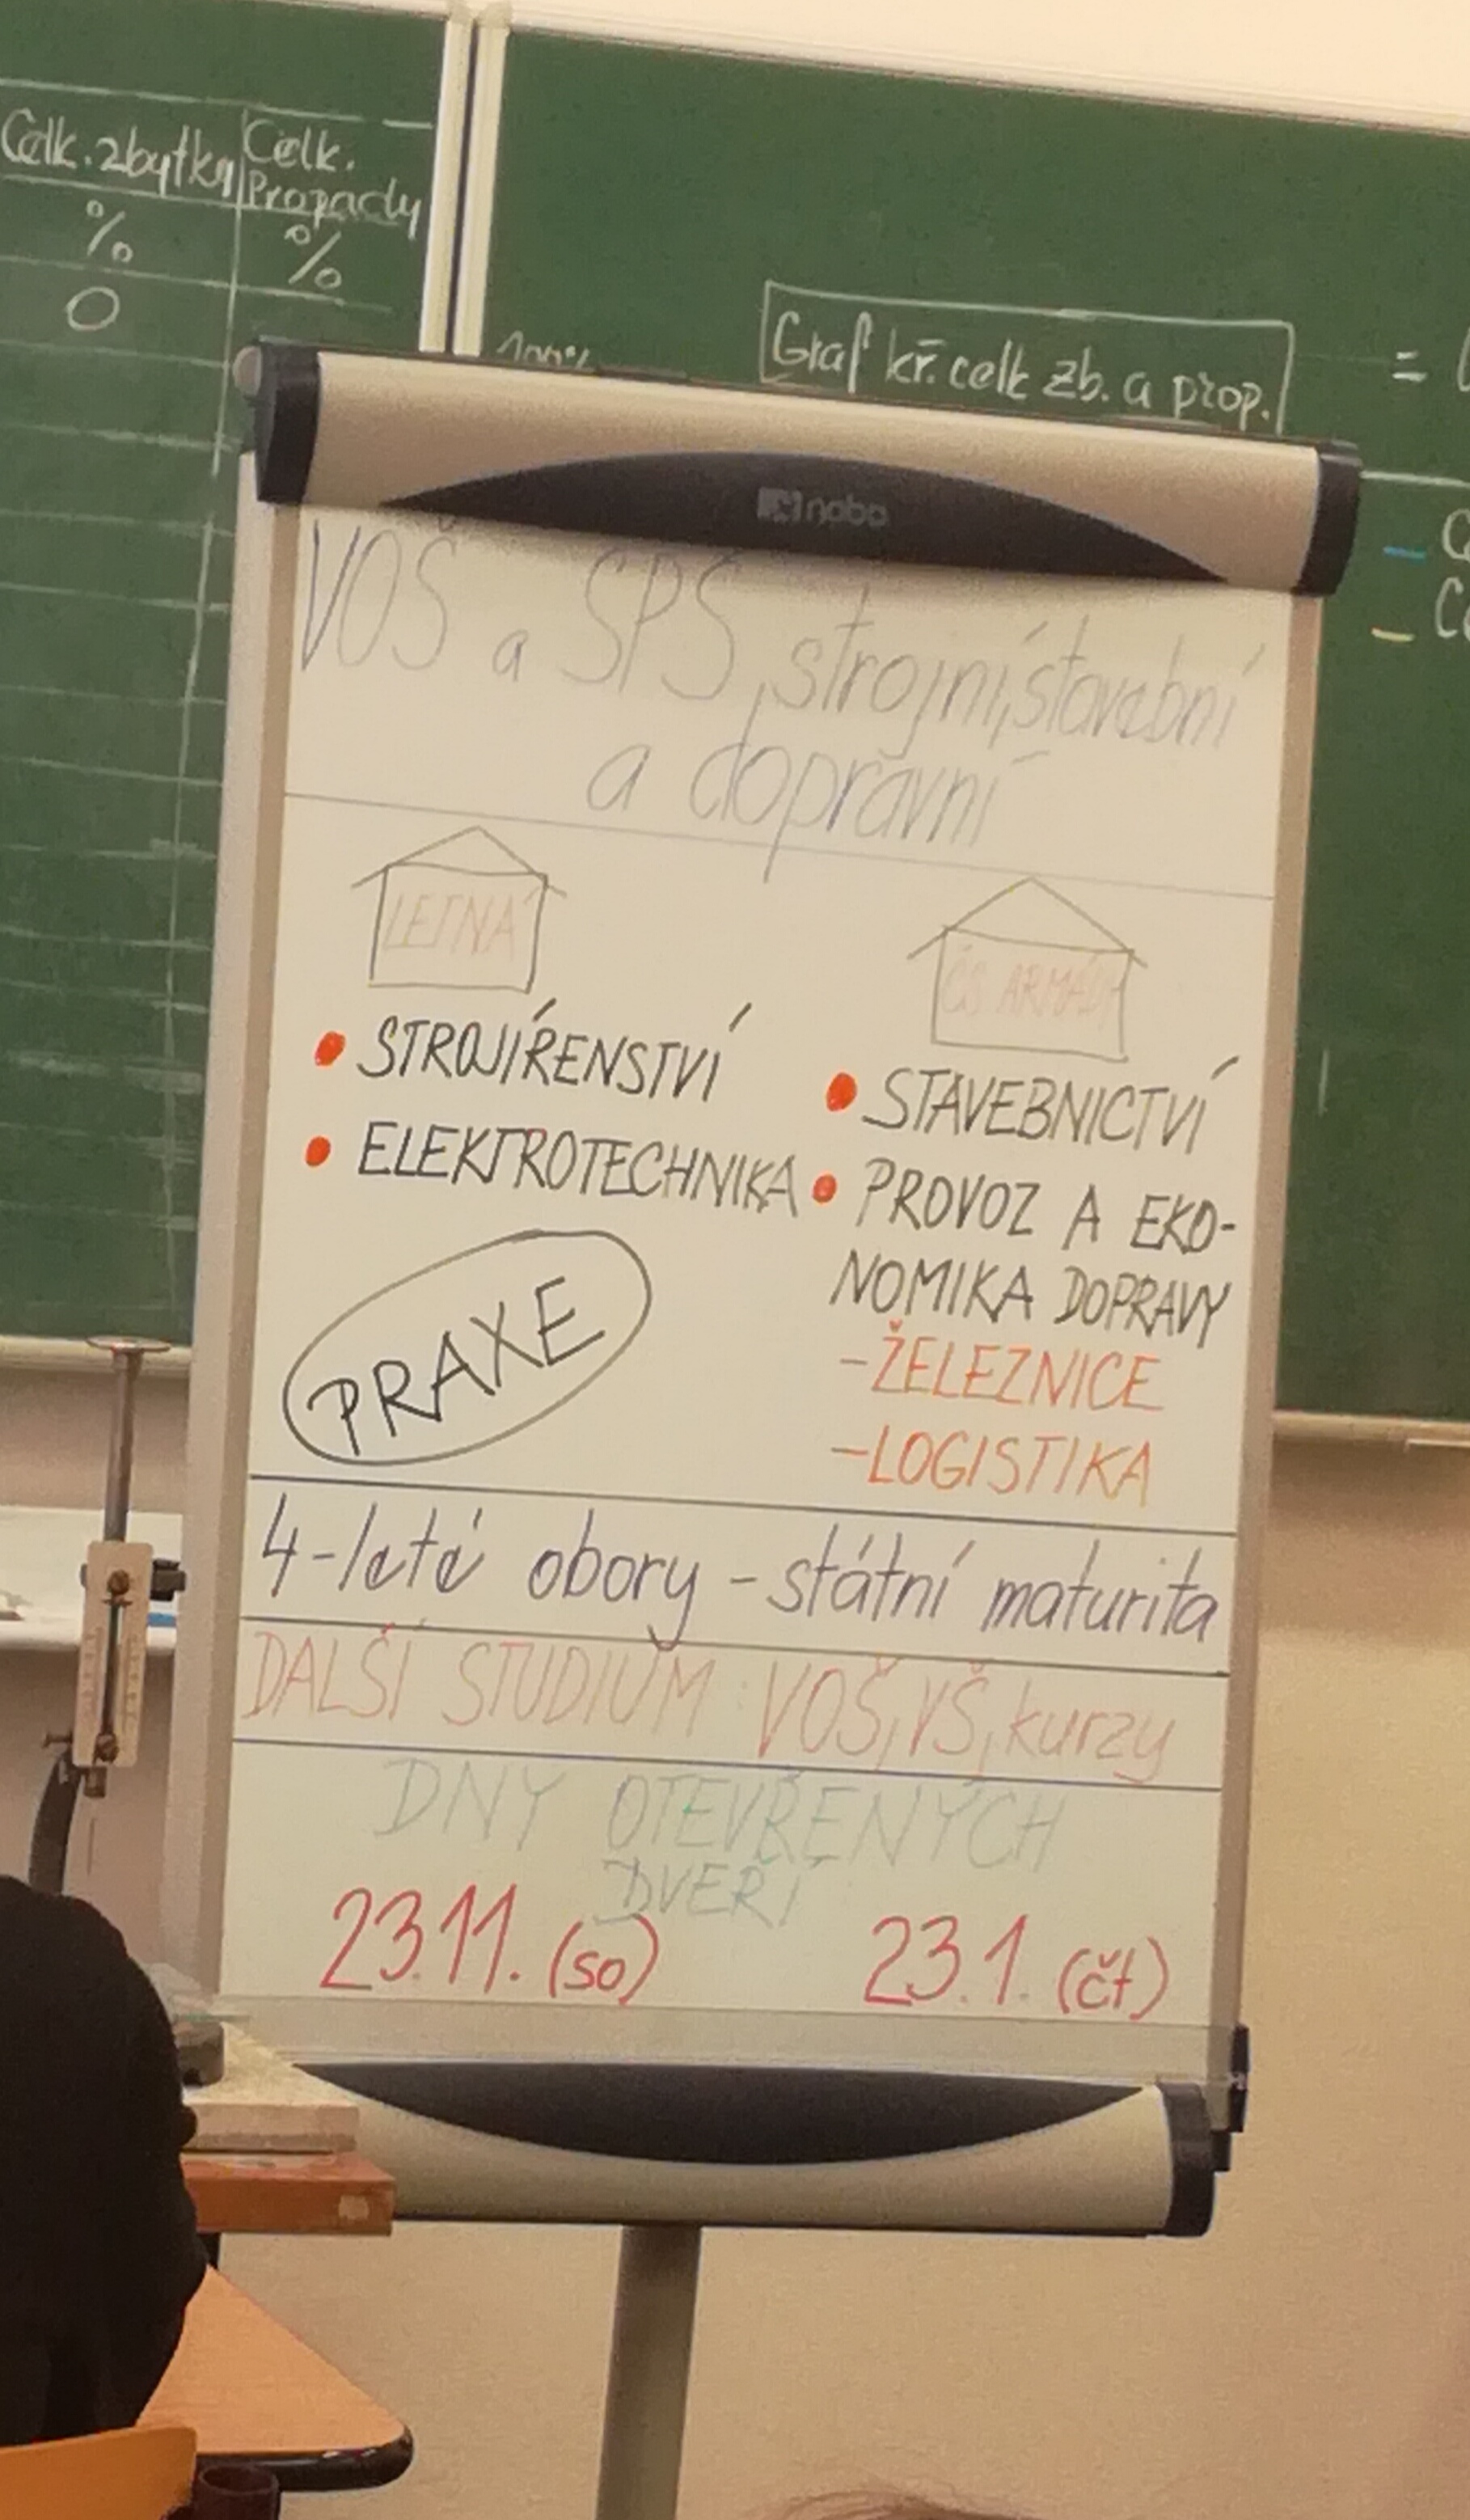 Celk. zbytky
Celk.
Propady
%
%
0
100%
Graf kř. celk zb. a prop.
=
nobo
VOŠ a SPŠ, strojní, stavební
a dopravní
LETNÁ
ČS ARMÁDY
• STROJÍRENSTVÍ
• ELEKTROTECHNIKA
PRAXE
• STAVEBNICTVÍ
• PROVOZ A EKO-
NOMIKA DOPRAVY
-ŽELEZNICE
-LOGISTIKA
4-leté obory - státní maturita
DALŠÍ STUDIUM: VOŠ, VŠ, kurzy
DNY OTEVŘENÝCH
DVEŘÍ
23.11. (so) 23.1. (čt)